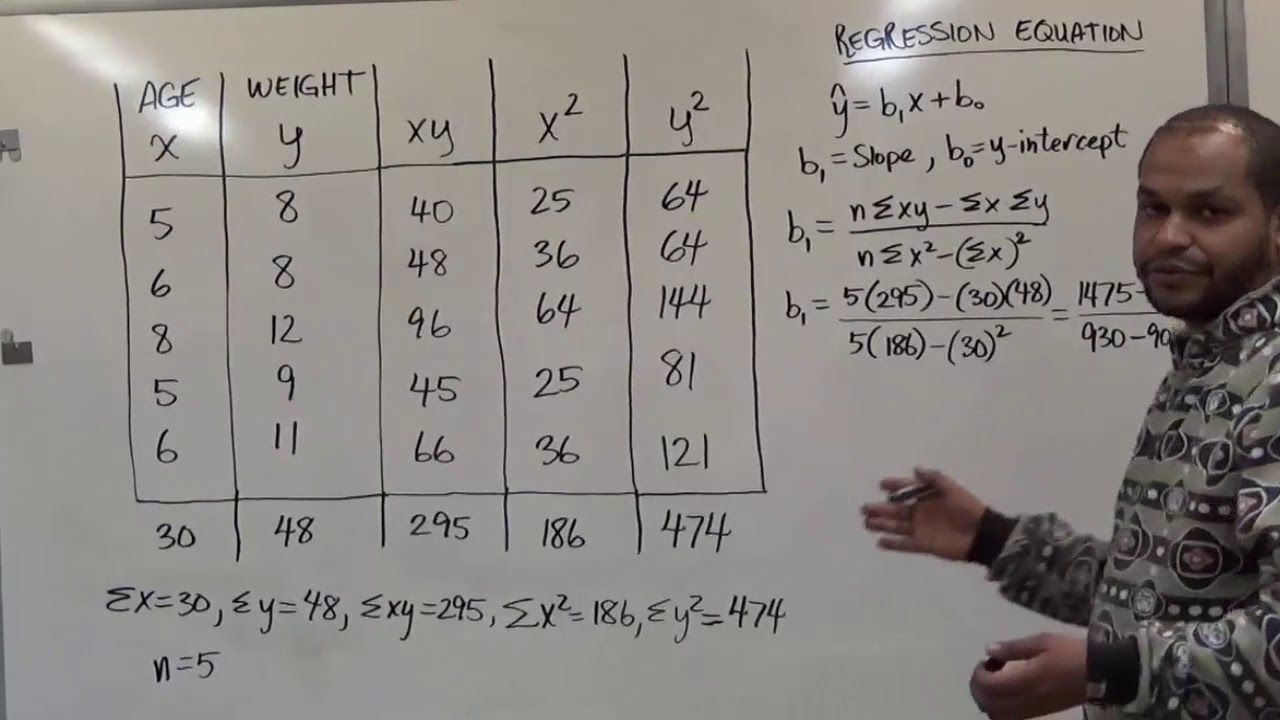 AGE WEIGHT
x y xy x² y²
5 8 40 25 64
6 8 48 36 64
8 12 96 64 144
5 9 45 25 81
6 11 66 36 121
30 48 295 186 474
Σx=30, Σy=48, Σxy=295, Σx²=186, Σy²=474
n=5
REGRESSION EQUATION
ŷ = b₁x + b₀
b₁ = Slope, b₀ = y-intercept
b₁ = (nΣxy − Σx Σy) / (nΣx² − (Σx)²)
b₁ = (5(295) − (30)(48)) / (5(186) − (30)²) = 1475− / 930−90